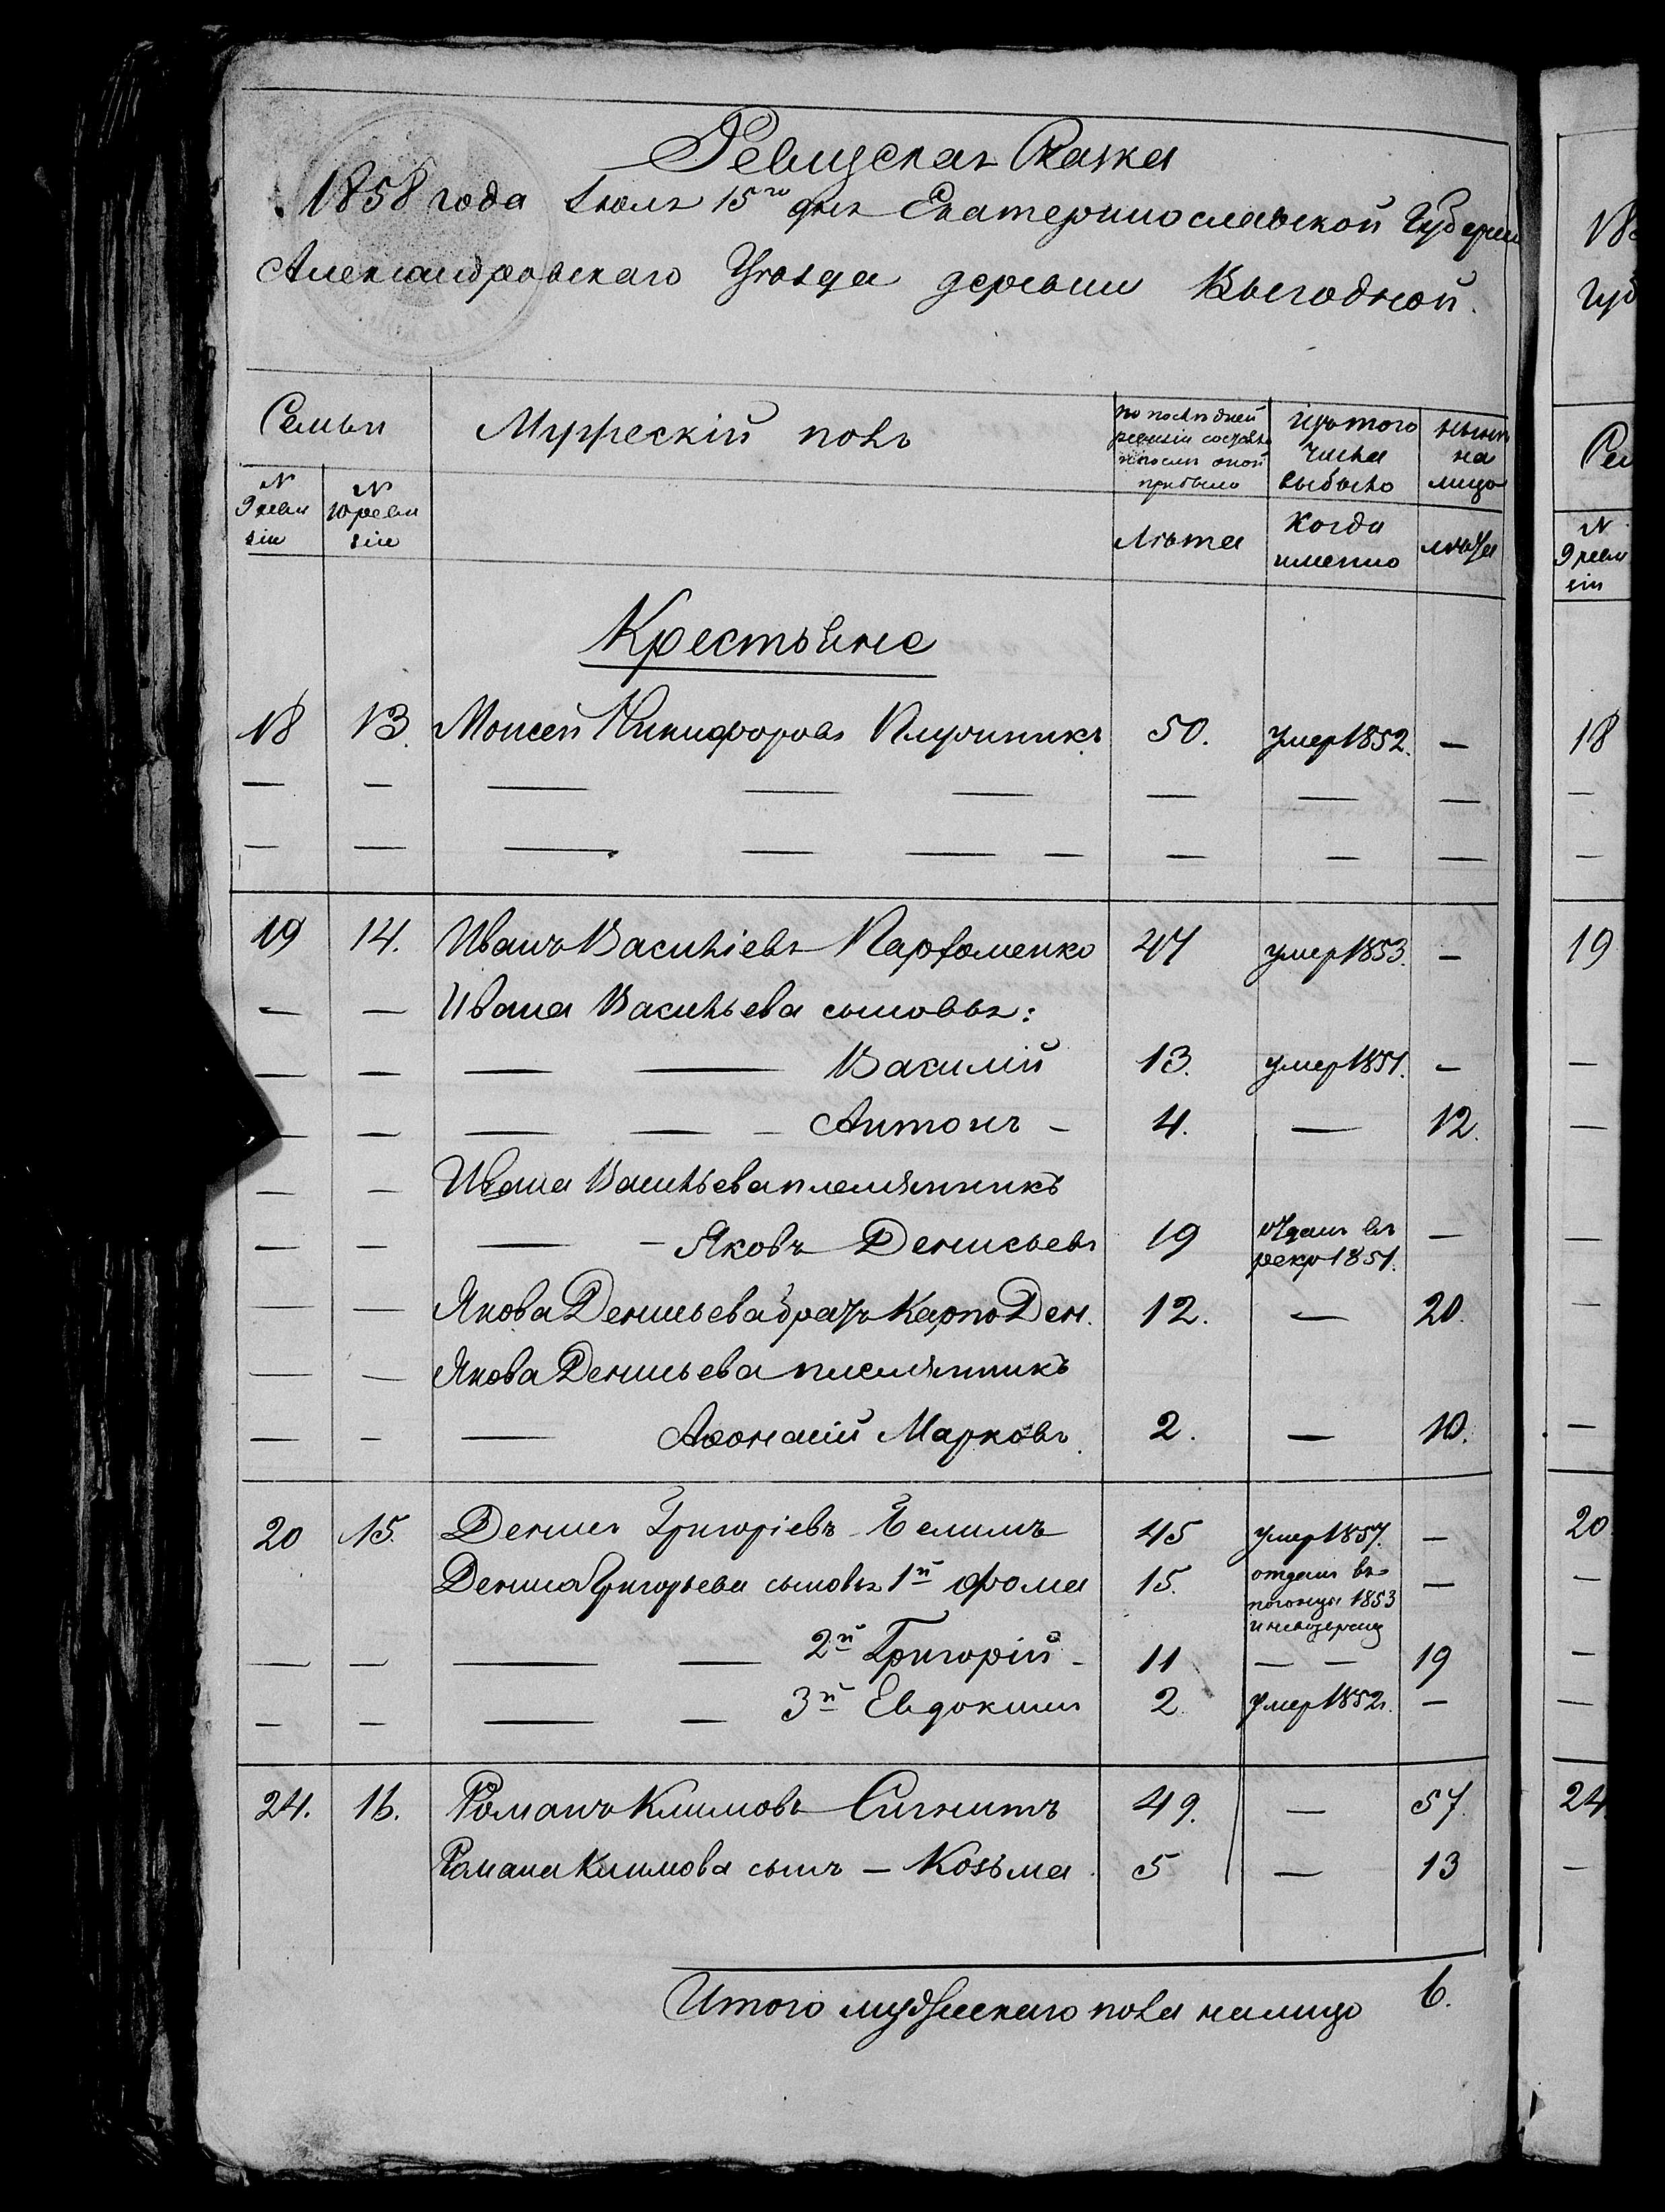 Ревизская Сказка
1858 года Іюля 15го дня Екатеринославской Губерніи
Александровскаго Уѣзда деревни Выгодной.
Семьи
Мужескій полъ
по послѣдней ревизіи состояло и послѣ оной прибыло
Изъ того числа выбыло
нынѣ на лицо
N 9 ревизіи
N 10 ревизіи
Лѣта
Когда именно
лѣта
Крестьяне
18 13. Моисей Никифоровъ 50. умер 1852. —
— — — — — — — —
— — — — — — — — —
19 14. Иванъ Василіевъ Парфоменко 47 умер 1853. —
— — Ивана Васильева сыновья:
— — — — Василій 13. умер 1851. —
— — — — — Антонъ — 4. — 12.
— — Ивана Васильева племянникъ
— — — — Яковъ Денисьевъ 19 отданъ въ рекр 1851. —
— — Якова Денисьева братъ Карпо Ден. 12. — 20.
— — Якова Денисьева племянникъ
— — — Афонасій Марковъ 2. — 10.
20 15. Денисъ Григоріевъ 45 умер 1857. —
Дениса Григорьева сыновья 1й Фома 15. отданъ въ погонцы 1853 —
— — — — 2й Григорій — 11 — — 19
— — — — 3й Евдокимъ 2. умер 1852. —
24. 16. Романъ Климовъ 49. — 57.
Романа Климова сынъ — Козьма 5 — 13
Итого мужескаго пола налицо 6.
18
19
20
24